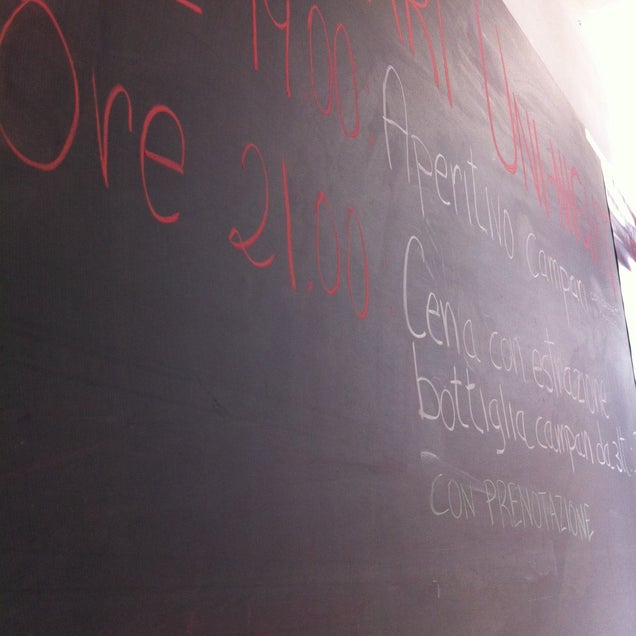 19.00
Aperitivo campari
Ore 21.00
Cena con estrazione
bottiglia campari da 3lt
CON PRENOTAZIONE